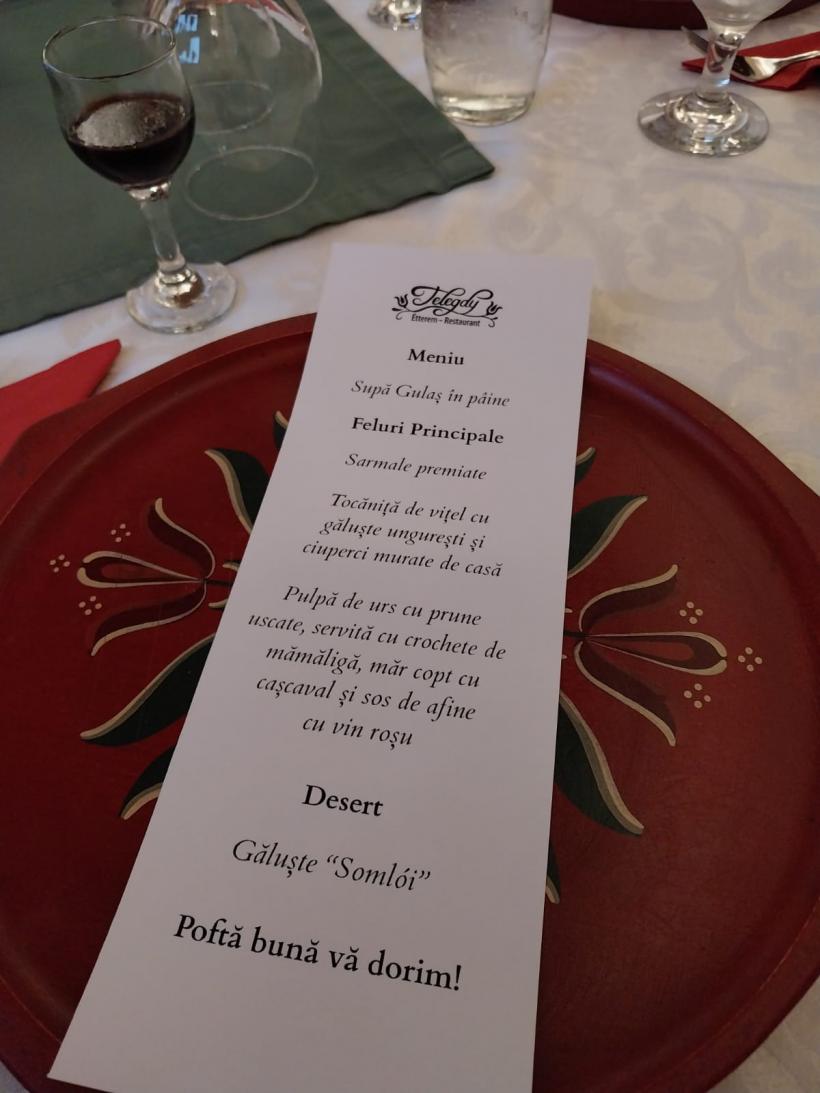 Telegdy
Étterem – Restaurant
Meniu
Supă Gulaș în pâine
Feluri Principale
Sarmale premiate
Tocăniță de vițel cu
găluște ungurești și
ciuperci murate de casă
Pulpă de urs cu prune
uscate, servită cu crochete de
mămăligă, măr copt cu
cașcaval și sos de afine
cu vin roșu
Desert
Găluște “Somlói”
Poftă bună vă dorim!